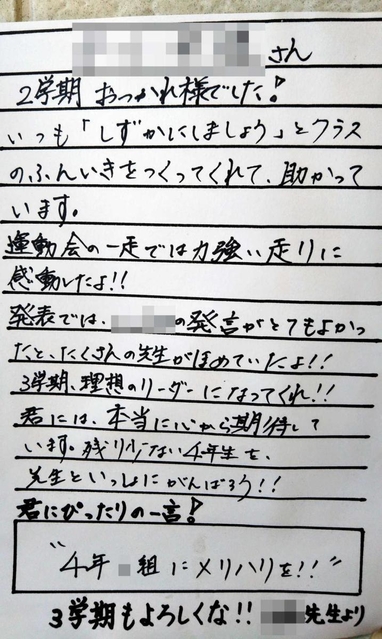 さん
2学期 おつかれ様でした!
いつも「しずかにしましょう」とクラス
のふんいきをつくってくれて、助かって
います。
運動会の一走では力強い走りに
感動したよ!!
発表では、の発言がとてもよかっ
たと、たくさんの先生がほめていたよ!!
3学期、理想のリーダーになってくれ!!
君には、本当に心から期待して
います。残り少ない4年生を、
先生といっしょにがんばろう!!
君にぴったりの一言!
"4年 組にメリハリを!!"
3学期もよろしくな!! 先生より